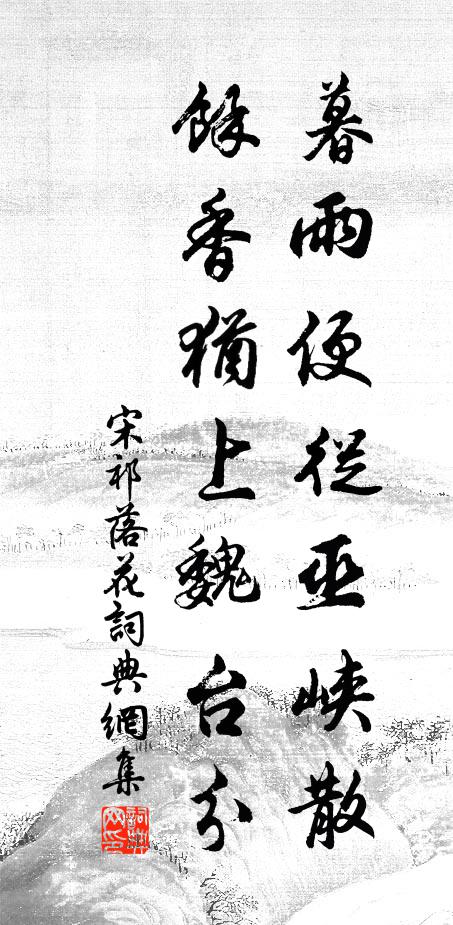 暮雨便從巫峽散
餘香猶上魏台分
宋祁落花詞典網集